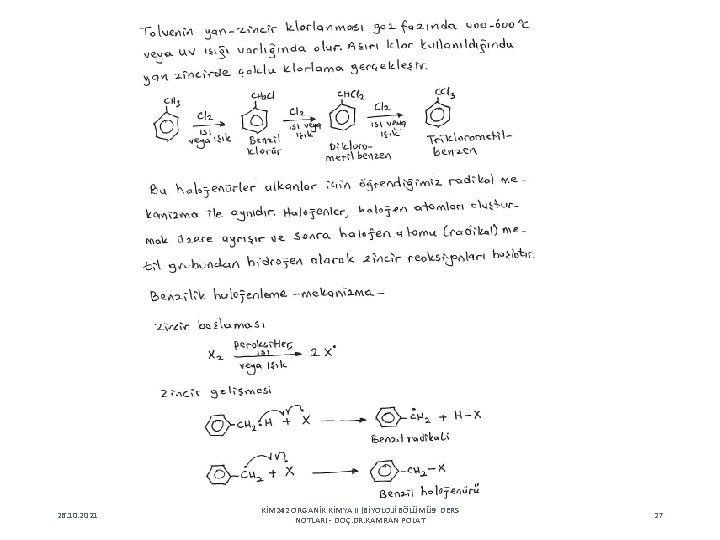 Toluenin yan-zincir klorlanması gaz fazında 400-600 °C
veya UV ışığı varlığında olur. Aşırı klor kullanıldığında
yan zincirde çoklu klorlama gerçekleşir.
CH3 CH2Cl CHCl2 CCl3
Cl2 Cl2 Cl2
ısı veya ışık ısı veya ışık ısı veya ışık
Benzil klorür
Dikloro-
metil benzen
Triklorometil-
benzen
Bu halojenürler alkanlar için öğrendiğimiz radikal me-
kanizma ile aynıdır. Halojenler, halojen atomları oluştur-
mak üzere ayrışır ve sonra halojen atomu (radikal) me-
til grubundan hidrojen alarak zincir reaksiyonları başlatır.
Benzilik halojenleme -mekanizma-
zincir başlaması
X2 peroksitler, ısı veya ışık 2 X•
zincir gelişmesi
CH2-H + X ĊH2 + H-X
Benzil radikali
ĊH2 + X -CH2-X
Benzil halojenürü
26.10.2021
KİM242 ORGANİK KİMYA II (BİYOLOJİ BÖLÜMÜ)- DERS
NOTLARI - DOÇ.DR.KAMRAN POLAT
27